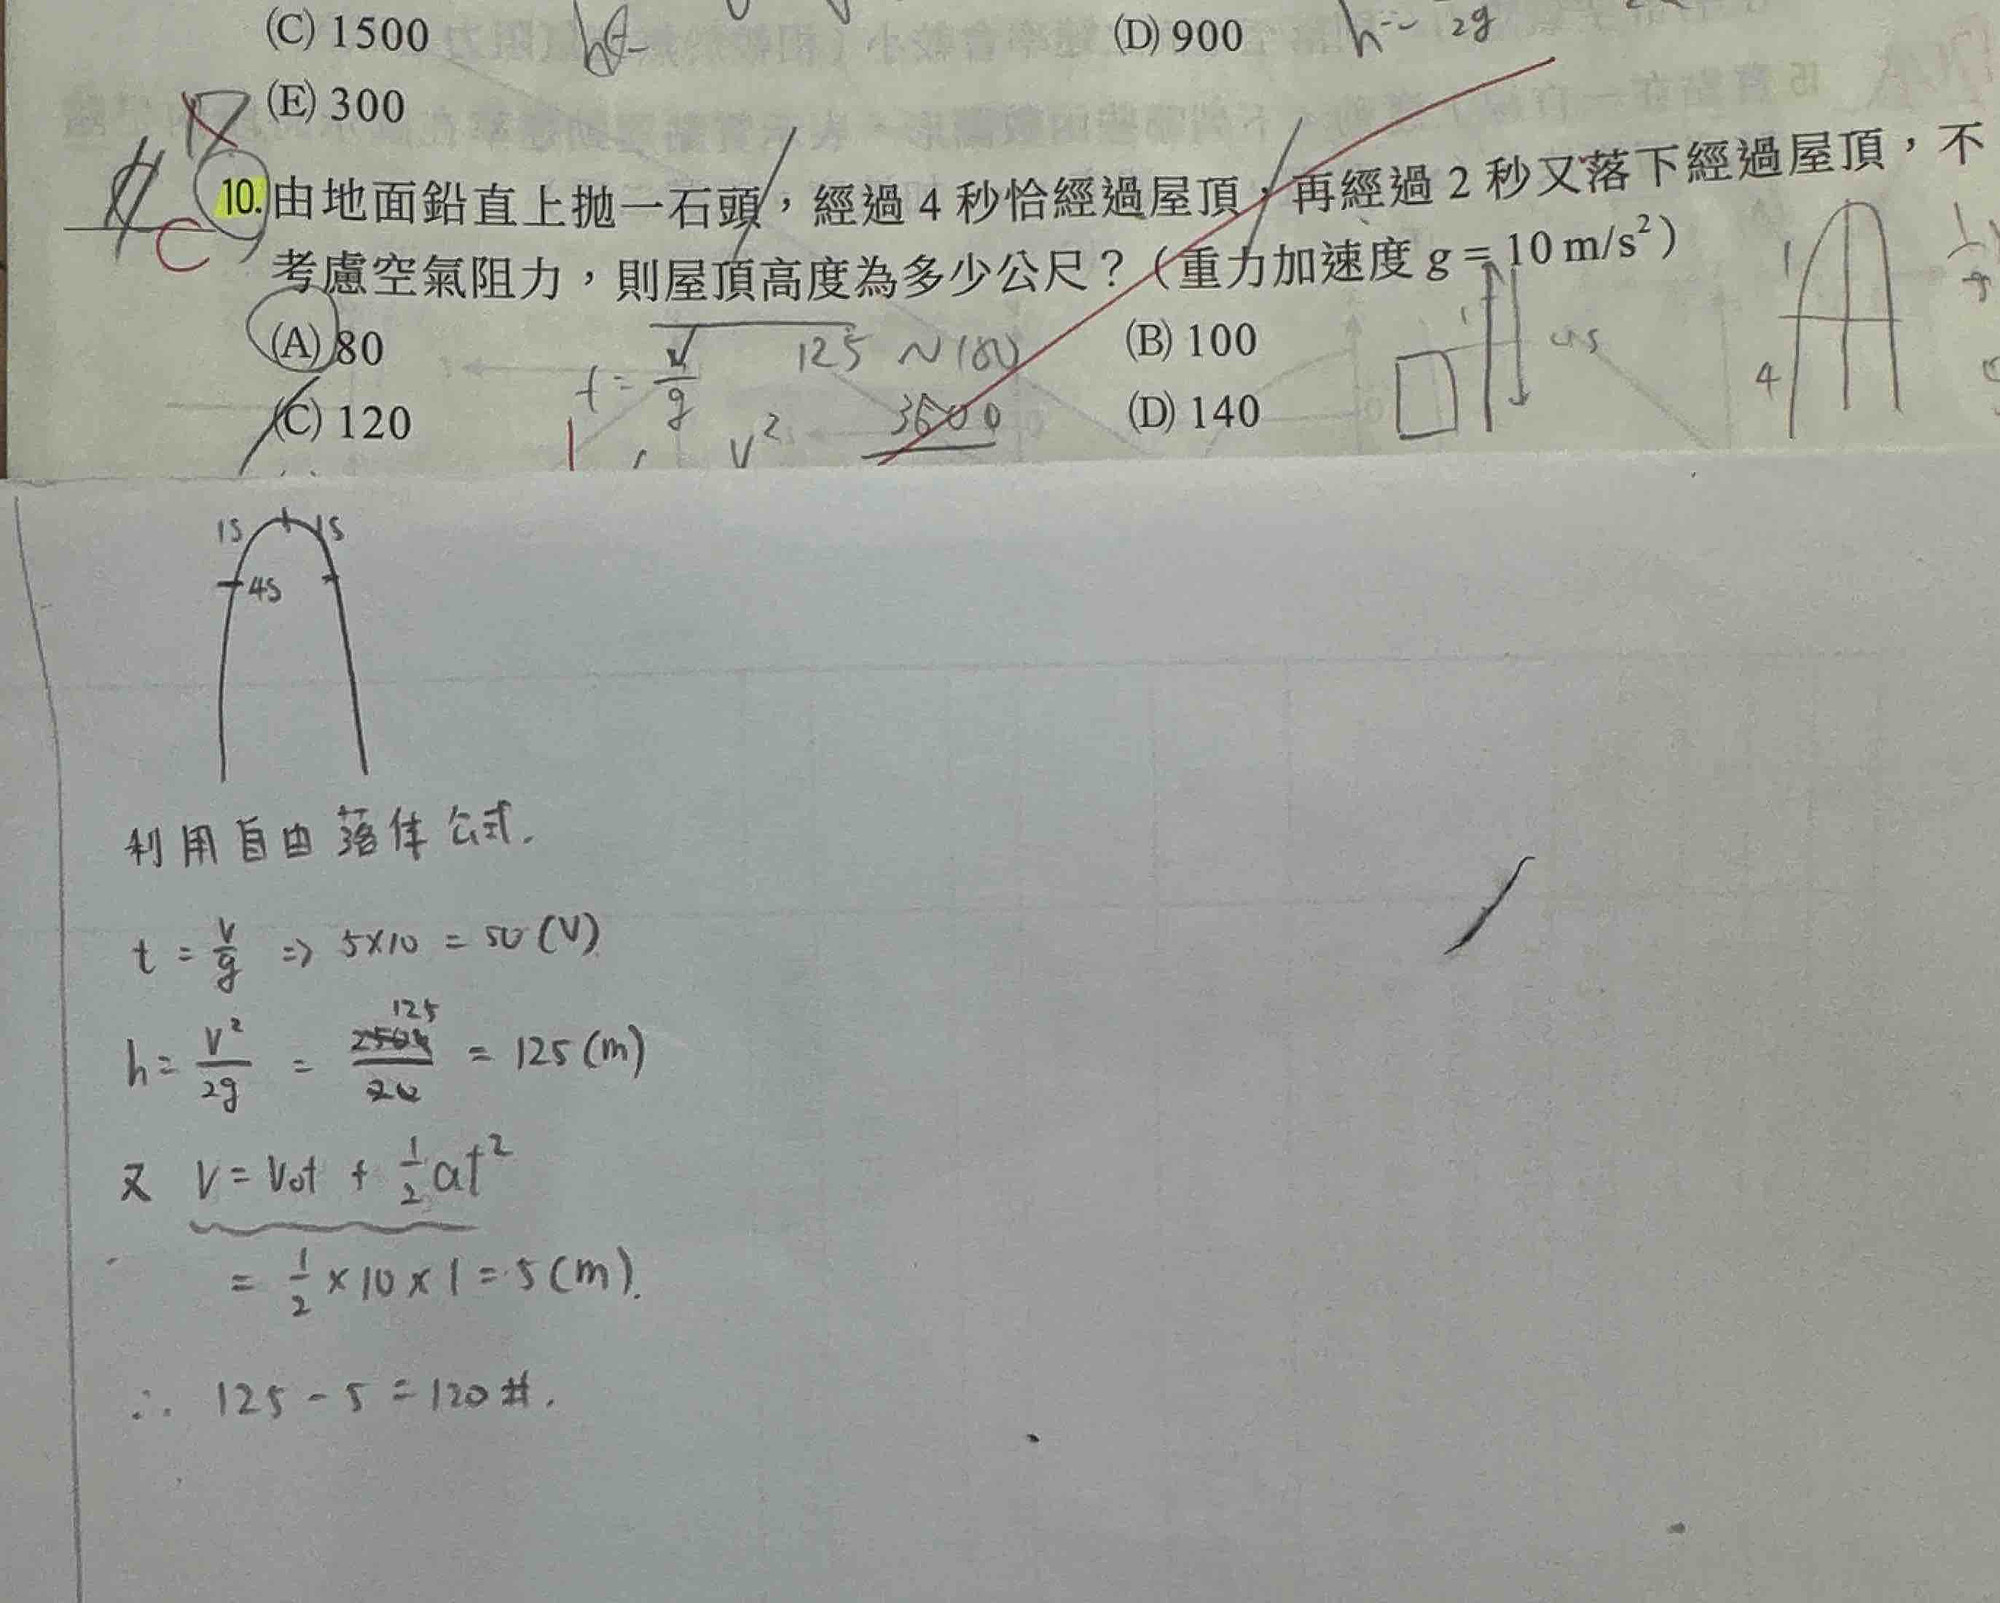 (C) 1500
(D) 900
h=
2g
(E) 300
10. 由地面鉛直上拋一石頭，經過 4 秒恰經過屋頂，再經過 2 秒又落下經過屋頂，不
C
考慮空氣阻力，則屋頂高度為多少公尺？（重力加速度 g = 10 m/s²）
(A) 80
(B) 100
t = v/g
125 ~180
1
4
(C) 120
(D) 140
3600
v²
1s 1s
4s
利用自由落体公式.
t = v/g => 5×10 = 50 (V)
h = v²/2g = 2500/20 125 = 125 (m)
又 V = V₀t + 1/2 at²
= 1/2 × 10 × 1 = 5 (m).
∴ 125 - 5 = 120 #.